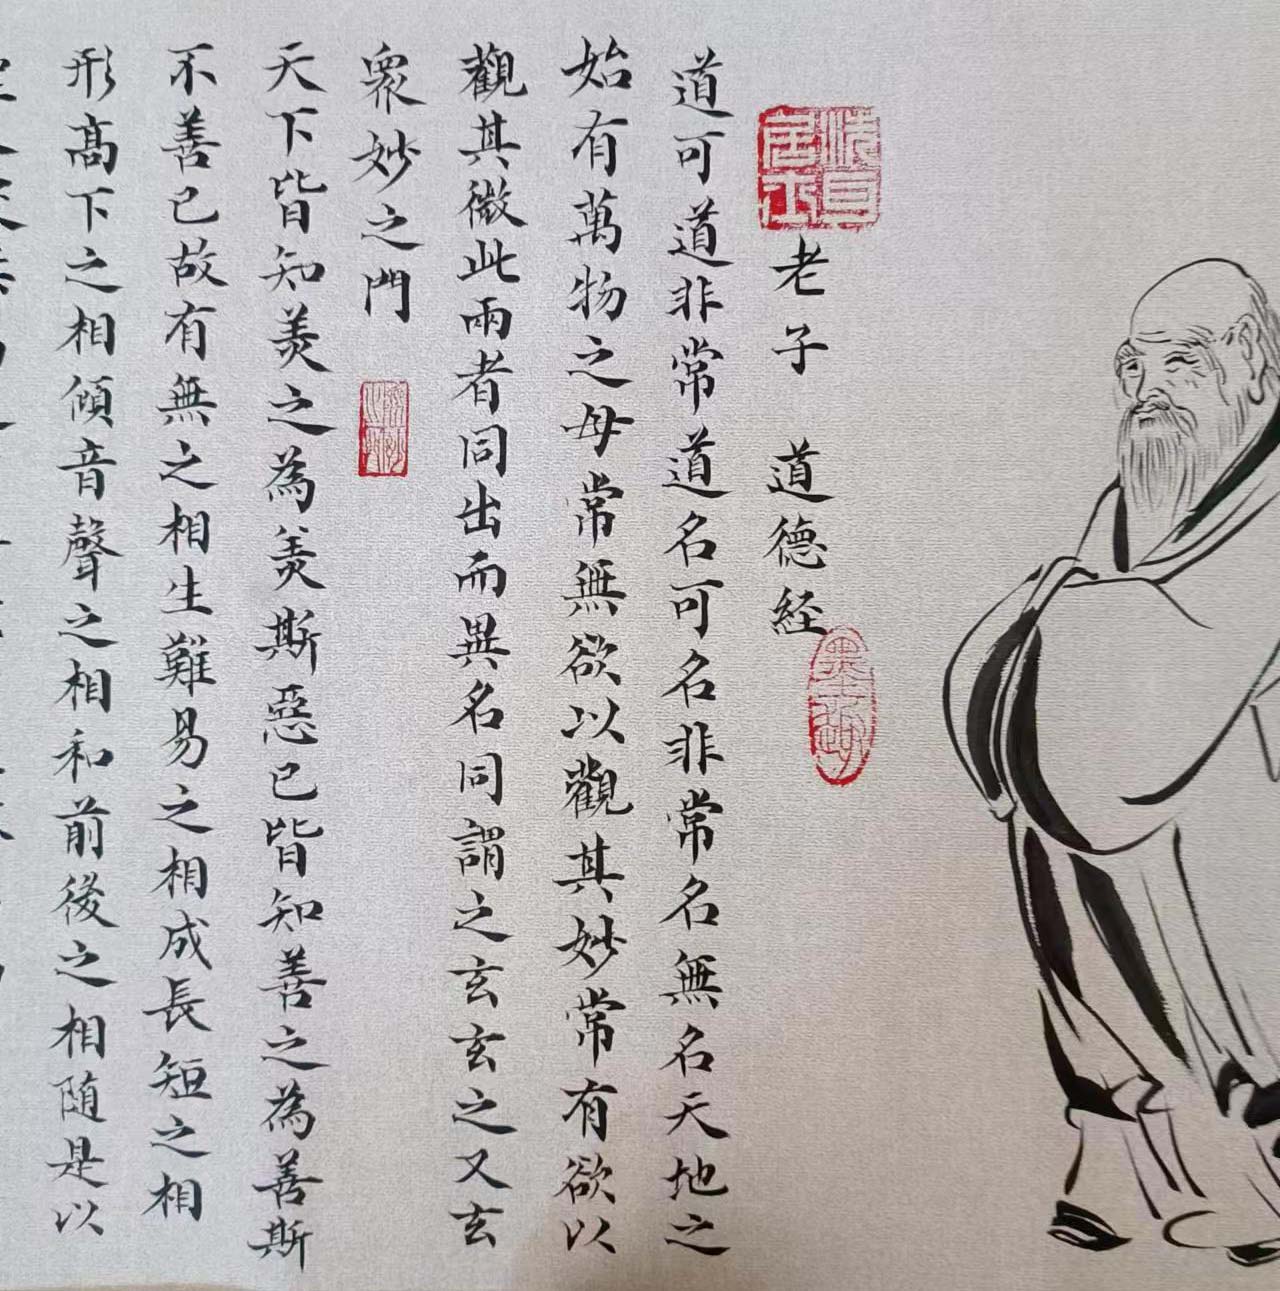 老子 道德経
道可道非常道名可名非常名無名天地之
始有萬物之母常無欲以觀其妙常有欲以
觀其微此兩者同出而異名同謂之玄玄之又玄
衆妙之門
天下皆知美之為美斯惡已皆知善之為善斯
不善已故有無之相生難易之相成長短之相
形髙下之相傾音聲之相和前後之相随是以